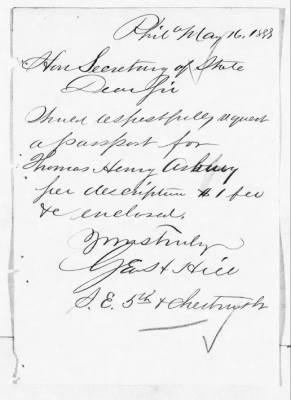 Phila May 16, 1883
Hon Secretary of State
Dear Sir
Would respectfully request
a passport for
Thomas Henry Asbury
per description & 1 fee
&c enclosed.
Yours truly
Geo H Hill
S.E. 5th & Chestnut St